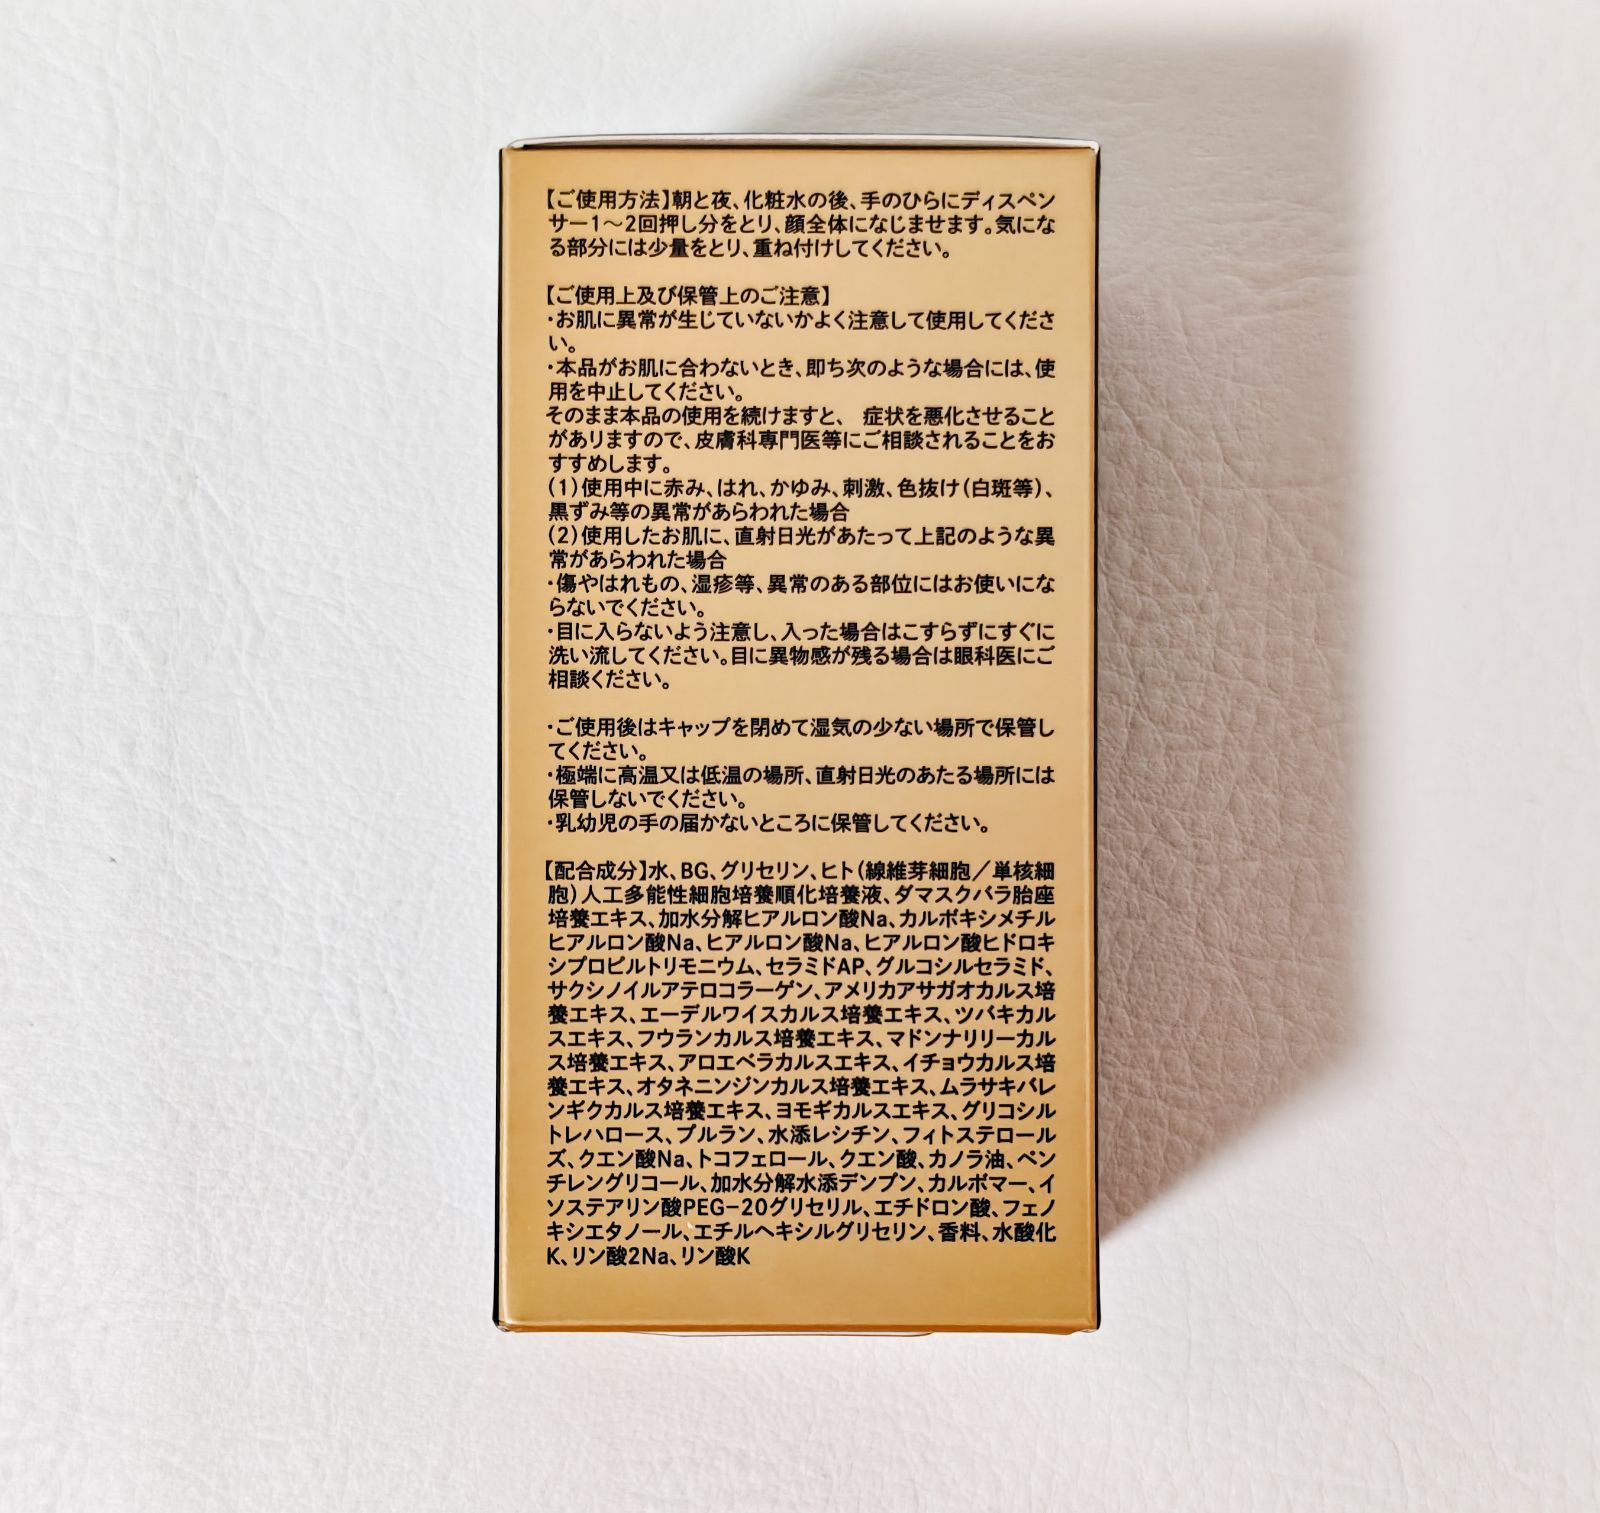 【ご使用方法】朝と夜、化粧水の後、手のひらにディスペン
サー1〜2回押し分をとり、顔全体になじませます。気にな
る部分には少量をとり、重ね付けしてください。
【ご使用上及び保管上のご注意】
・お肌に異常が生じていないかよく注意して使用してくださ
い。
・本品がお肌に合わないとき、即ち次のような場合には、使
用を中止してください。
そのまま本品の使用を続けますと、 症状を悪化させること
がありますので、皮膚科専門医等にご相談されることをお
すすめします。
(1)使用中に赤み、はれ、かゆみ、刺激、色抜け(白斑等)、
黒ずみ等の異常があらわれた場合
(2)使用したお肌に、直射日光があたって上記のような異
常があらわれた場合
・傷やはれもの、湿疹等、異常のある部位にはお使いにな
らないでください。
・目に入らないよう注意し、入った場合はこすらずにすぐに
洗い流してください。目に異物感が残る場合は眼科医にご
相談ください。
・ご使用後はキャップを閉めて湿気の少ない場所で保管し
てください。
・極端に高温又は低温の場所、直射日光のあたる場所には
保管しないでください。
・乳幼児の手の届かないところに保管してください。
【配合成分】水、BG、グリセリン、ヒト(線維芽細胞/単核細
胞)人工多能性細胞培養順化培養液、ダマスクバラ胎座
培養エキス、加水分解ヒアルロン酸Na、カルボキシメチル
ヒアルロン酸Na、ヒアルロン酸Na、ヒアルロン酸ヒドロキ
シプロピルトリモニウム、セラミドAP、グルコシルセラミド、
サクシノイルアテロコラーゲン、アメリカアサガオカルス培
養エキス、エーデルワイスカルス培養エキス、ツバキカル
スエキス、フウランカルス培養エキス、マドンナリリーカル
ス培養エキス、アロエベラカルスエキス、イチョウカルス培
養エキス、オタネニンジンカルス培養エキス、ムラサキバレ
ンギクカルス培養エキス、ヨモギカルスエキス、グリコシル
トレハロース、プルラン、水添レシチン、フィトステロール
ズ、クエン酸Na、トコフェロール、クエン酸、カノラ油、ペン
チレングリコール、加水分解水添デンプン、カルボマー、イ
ソステアリン酸PEG−20グリセリル、エチドロン酸、フェノ
キシエタノール、エチルヘキシルグリセリン、香料、水酸化
K、リン酸2Na、リン酸K